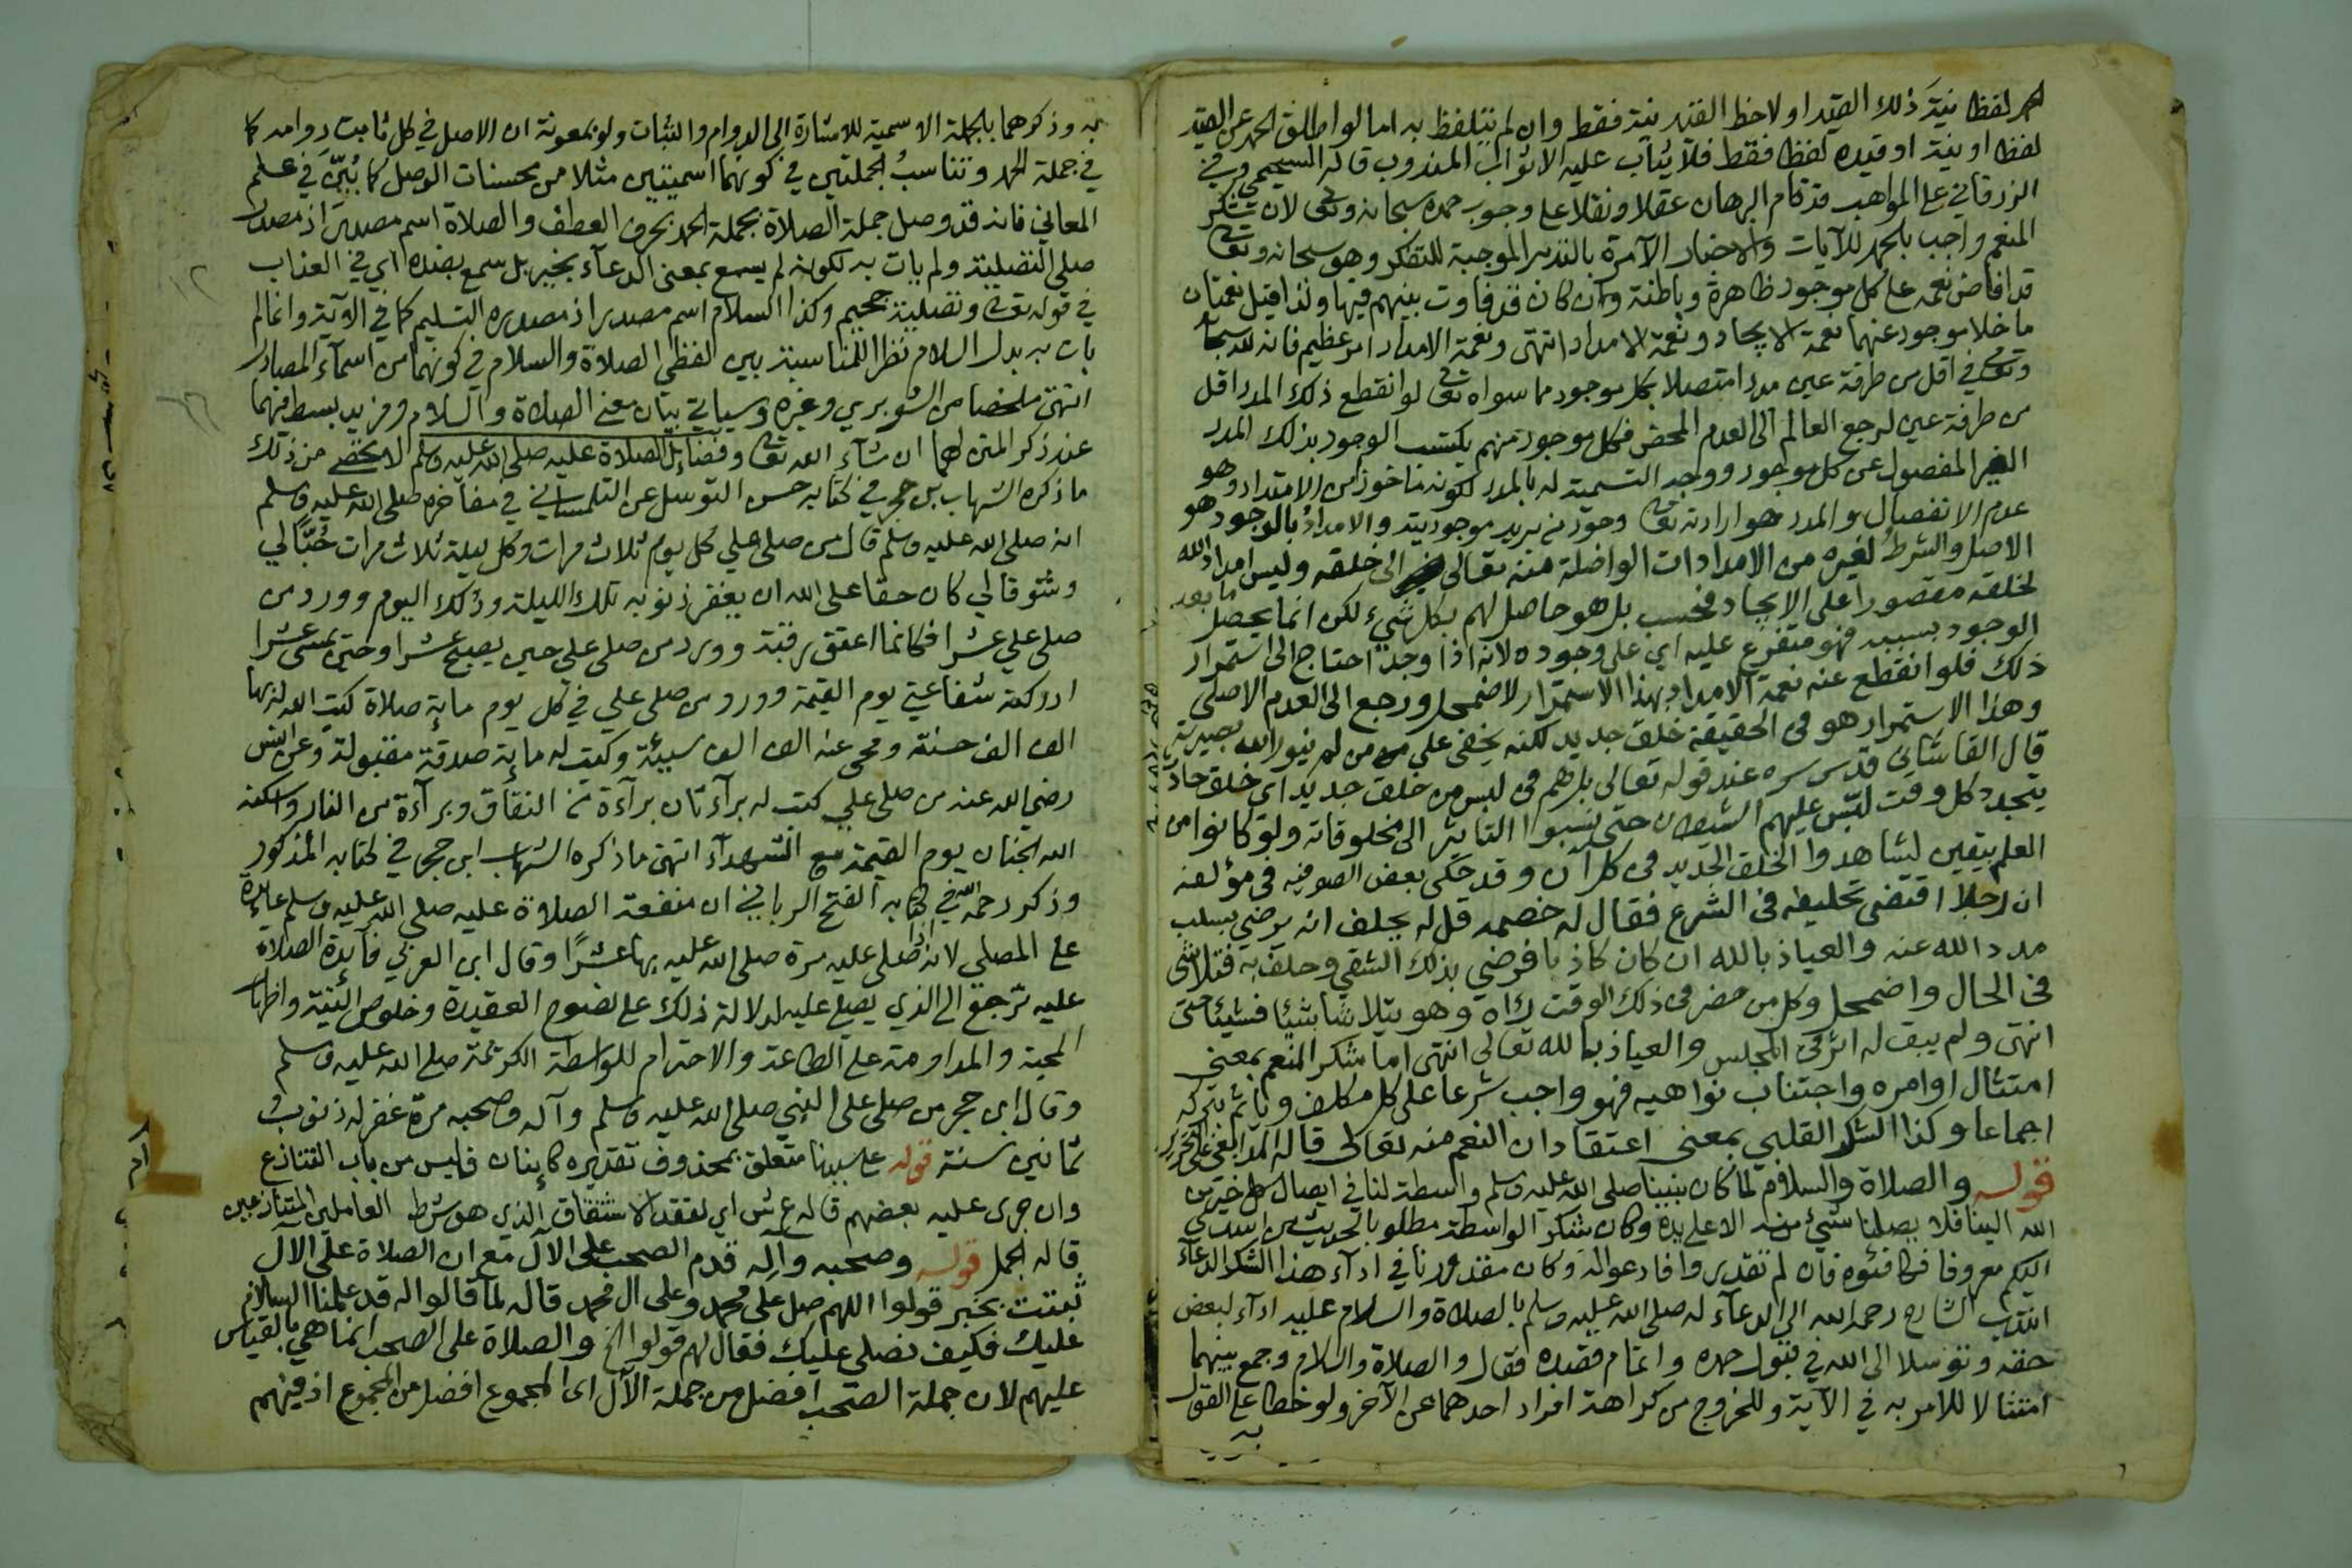 لفظا نية ذلك القيد او لاحظ القيد نية فقط وان لم يتلفظ به اما لو اطلق الحمد عن القيد
لفظا او نية او قيده لفظا فقط فلا يثاب عليه الا ثواب المندوب قاله السجيمي وفي
الزرقاني على المواهب قد قام البرهان عقلا ونقلا على وجوب حمده سبحانه وتعالى لان شكر
المنعم واجب بالحمد للآيات والاخبار الآمرة بالتدبر الموجبة للتفكر وهو سبحانه وتعالى
قد افاض نعمه على كل موجود ظاهرة وباطنة وان كان قد فاوت بينهم فيها ولذا قيل نعمتان
ما خلا موجود عنهما نعمة الايجاد ونعمة الامداد انتهى ونعمة الامداد امر عظيم فانه لله سبحانه
وتعالى في اقل من طرفة عين مددا متصلا بكل موجود مما سواه تعالى لو انقطع ذلك المدد اقل
من طرفة عين لرجع العالم الى العدم المحض فكل موجود منهم يكتسب الوجود بذلك المدد
الغير المفصول عن كل موجود ووجه التسمية له بالمدد لكونه ماخوذ من الامتداد وهو
عدم الانفصال والمدد هو ارادته تعالى وجود من يريد موجوديته والامداد بالوجود هو
الاصل والشرط لغيره من الامدادات الواصلة منه تعالى الى خلقه وليس امداد الله
لخلقه مقصورا على الايجاد فحسب بل هو حاصل لهم بكل شيء لكن انما يحصل ما بعد
الوجود بسببه فهو متفرع عليه اي على وجوده لانه اذا وجد احتاج الى استمرار
ذلك فلو انقطع عنه نعمة الامداد بهذا الاستمرار لاضمحل ورجع الى العدم الاصلي
وهذا الاستمرار هو في الحقيقة خلق جديد لكنه يخفى على من لم ينور الله بصيرته
قال القاشاني قدس سره عند قوله تعالى بل هم في لبس من خلق جديد اي خلق حادث
يتجدد كل وقت لبّس عليهم الشيطان حتى نسبوا التاثير الى مخلوقاته ولو كانوا من
العلم بيقين لشاهدوا الخلق الجديد في كل آن وقد حكى بعض الصوفيه في مؤلفه
ان رجلا اقتضى تحليفه في الشرع فقال له خصمه قل له يحلف انه يرضى بسلب
مدد الله عنه والعياذ بالله ان كان كاذبا فرضي بذلك الشقي وحلف به فتلاشى
في الحال واضمحل وكل من حضر في ذلك الوقت رآه وهو يتلاشا شيئا فشيئا حتى
انتهى ولم يبق له اثر في المجلس والعياذ بالله تعالى انتهى اما شكر المنعم بمعنى
امتثال اوامره واجتناب نواهيه فهو واجب شرعا على كل مكلف وياثم بتركه
اجماعا وكذا الشكر القلبي بمعنى اعتقاد ان النعم منه تعالى قاله المدابغي على التحرير
قوله والصلاة والسلام لما كان نبينا صلى الله عليه وسلم واسطة لنا في ايصال كل خير من
الله الينا فلا يصلنا شيء منه الا على يده وكان شكر الواسطة مطلوبا لحديث من اسدى
اليكم معروفا فكافئوه فان لم تقدروا فادعوا له وكان مقدورنا في اداء هذا الشكر الدعاء
انتدب الشارح رحمه الله الى الدعاء له صلى الله عليه وسلم بالصلاة والسلام عليه اداء لبعض
حقه وتوسلا الى الله في قبول حمده واتمام قصده فقال والصلاة والسلام وجمع بينهما
امتثالا للامر به في الآية وللخروج من كراهة افراد احدهما عن الآخر ولو خطا على القول
به
به وذكرهما بالجملة الاسمية للاشارة الى الدوام والثبات ولو بمعونة ان الاصل في كل ثابت دوامه كما
في جملة الحمد وتناسب الجملتين في كونهما اسميتين مثلا من محسنات الوصل كما بُيّن في علم
المعاني فانه قد وصل جملة الصلاة بجملة الحمد بحرف العطف والصلاة اسم مصدر اذ مصدر
صلى التصلية ولم يات به لكونه لم يسمع بمعنى الدعاء بخير بل سمع بضده اي في العذاب
في قوله تعالى وتصلية جحيم وكذا السلام اسم مصدر اذ مصدره التسليم كما في الآية وانما لم
يات به بدل السلام نظرا للمناسبة بين لفظي الصلاة والسلام في كونهما من اسماء المصادر
انتهى ملخصا من الشوبري وغيره وسياتي بيان معنى الصلاة والسلام ومزيد بسط فيهما
عند ذكر المتن لهما ان شاء الله تعالى وفضائل الصلاة عليه صلى الله عليه وسلم لا تحصى من ذلك
ما ذكره الشهاب بن حجر في كتابه حسن التوسل عن التلمساني في مفاخره صلى الله عليه وسلم
انه صلى الله عليه وسلم قال من صلى علي كل يوم ثلاث مرات وكل ليلة ثلاث مرات حُبًّا لي
وشوقا لي كان حقا على الله ان يغفر ذنوبه تلك الليلة وذلك اليوم وورد من
صلى علي عشرا فكانما اعتق رقبة وورد من صلى علي حين يصبح عشرا وحين يمسي عشرا
ادركته شفاعتي يوم القيمة وورد من صلى علي في كل يوم ماية صلاة كتب الله له بها
الف الف حسنة ومحى عنه الف الف سيئة وكتب له ماية صدقة مقبولة وعن انس
رضي الله عنه من صلى علي كتب له براءتان براءة من النفاق وبراءة من النار واسكنه
الله الجنان يوم القيمة مع الشهداء انتهى ما ذكره الشهاب ابن حجر في كتابه المذكور
وذكر رحمه الله في كتابه الفتح الرباني ان منفعة الصلاة عليه صلى الله عليه وسلم عايدة
على المصلي لانه اذا صلى عليه مرة صلى الله عليه بها عشرًا وقال ابن العربي فائدة الصلاة
عليه ترجع الى الذي يصلي عليه لدلالة ذلك على نصوح العقيدة وخلوص النية واظهار
المحبة والمداومة على الطاعة والاحترام للواسطة الكريمة صلى الله عليه وسلم
وقال ابن حجر من صلى على النبي صلى الله عليه وسلم وآله وصحبه مرة غفر له ذنوب
ثمانين سنة قوله على سيدنا متعلق بمحذوف تقديره كاينان فليس من باب التنازع
وان جرى عليه بعضهم قاله ع ش اي لفقد الاشتقاق الذي هو شرط العاملين المتنازعين
قاله الجمل قوله وصحبه وآله قدم الصحب على الآل مع ان الصلاة على الآل
ثبتت بخبر قولوا اللهم صل على محمد وعلى ال محمد قاله لما قالوا له قد علمنا السلام
عليك فكيف نصلي عليك فقال لهم قولوا الخ والصلاة على الصحب انما هي بالقياس
عليهم لان جملة الصحب افضل من جملة الآل اى المجموع افضل من المجموع اذ فيهم